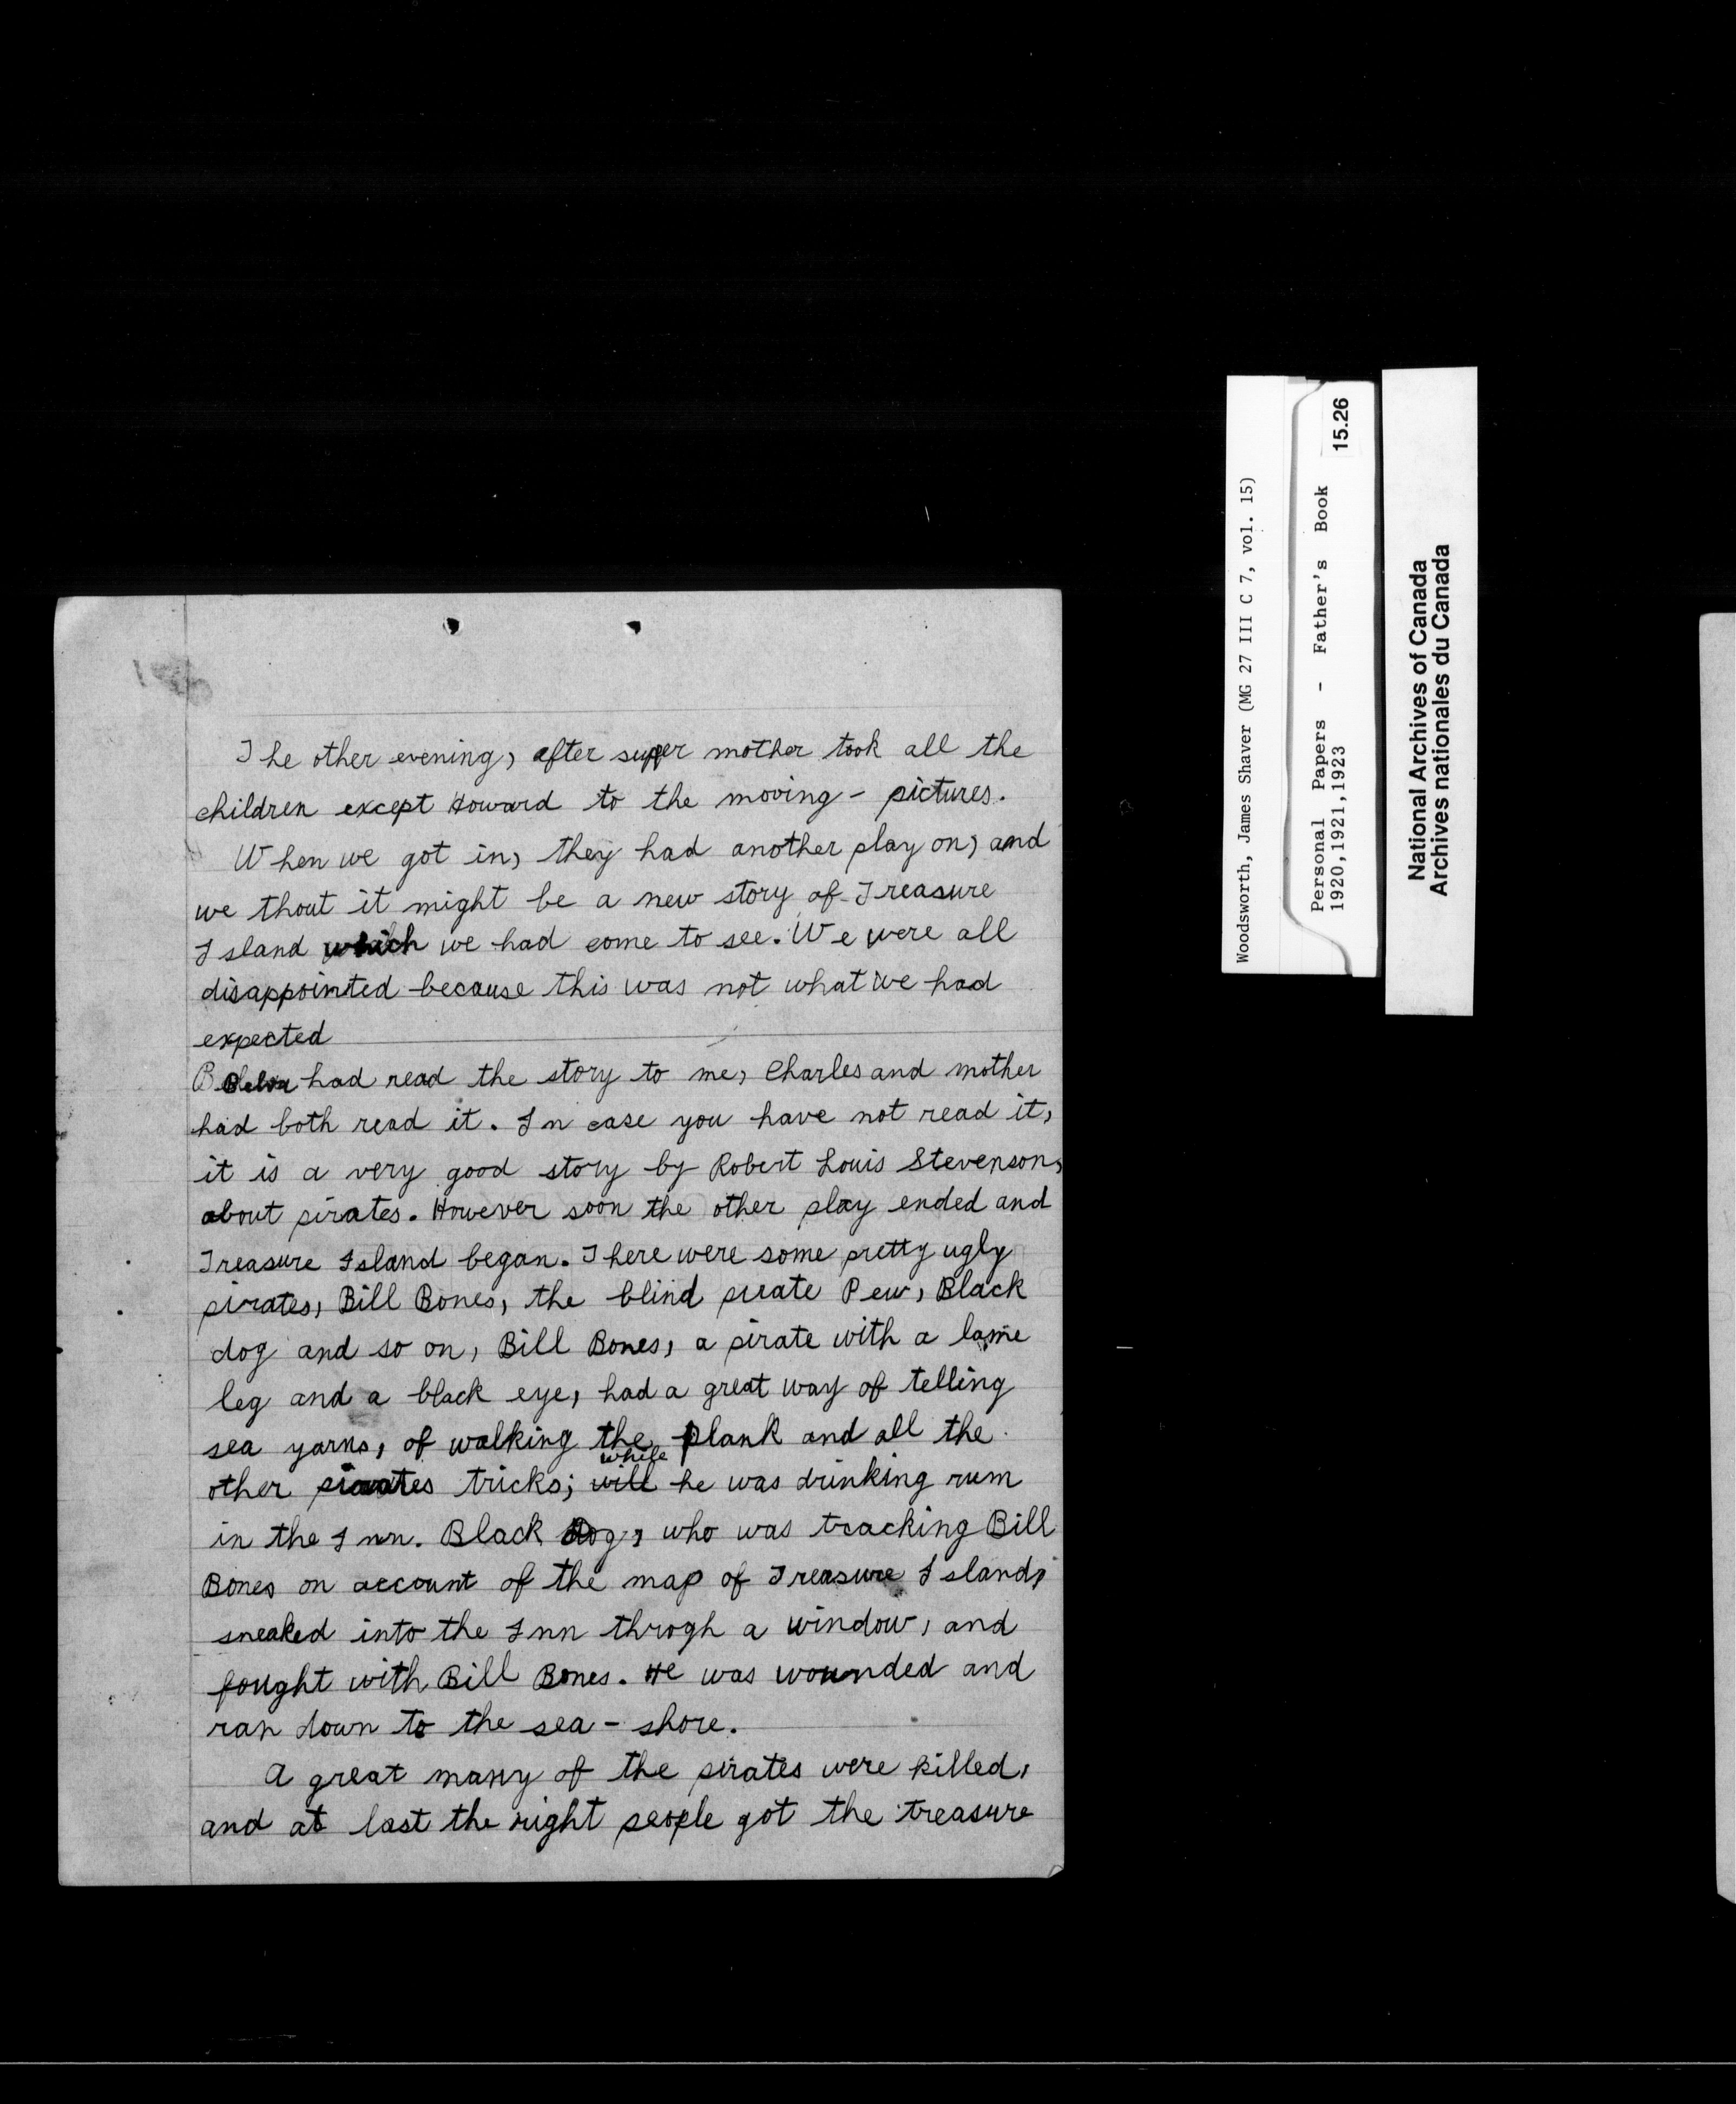 The other evening, after supper mother took all the
children except Howard to the moving - pictures.
When we got in, they had another play on, and
we thout it might be a new story of Treasure
Island which we had come to see. We were all
disappointed because this was not what we had
expected
had read the story to me, Charles and mother
had both read it. In case you have not read it,
it is a very good story by Robert Louis Stevenson,
about pirates. However soon the other play ended and
Treasure Island began. There were some pretty ugly
pirates, Bill Bones, the blind pirate Pew, Black
dog and so on, Bill Bones, a pirate with a lame
leg and a black eye, had a great way of telling
sea yarns, of walking the plank and all the
while
other pirates tricks; will he was drinking rum
in the Inn. Black Dog, who was tracking Bill
Bones on account of the map of Treasure Island,
sneaked into the Inn throgh a window, and
fought with Bill Bones. He was wounded and
ran down to the sea - shore.
A great many of the pirates were killed,
and at last the right people got the treasure
Woodsworth, James Shaver (MG 27 III C 7, vol. 15)
Personal Papers - Father's Book 15.26
1920,1921,1923
National Archives of Canada
Archives nationales du Canada